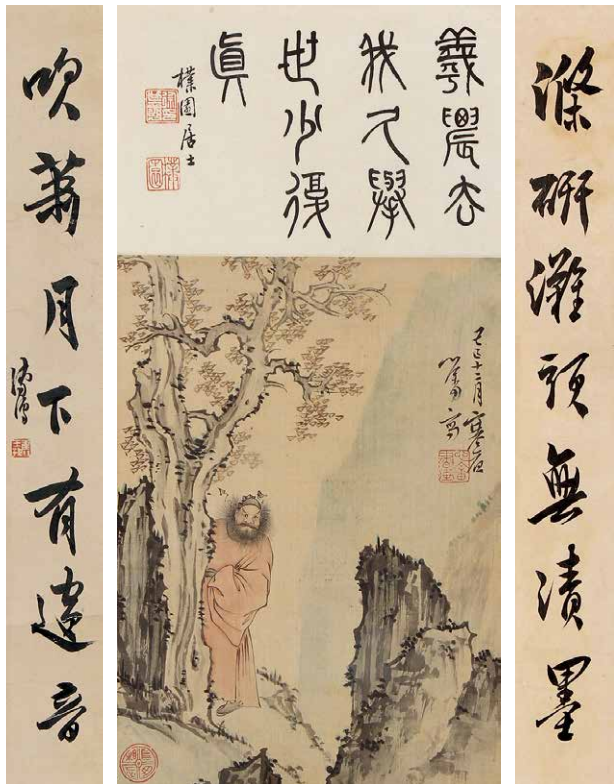 滌研灘頭無漬墨
羲農去
我久舉
世少復
真
樸園居士
己巳十二月寒夜
心畬寫
吹簫月下有遺音
溥儒